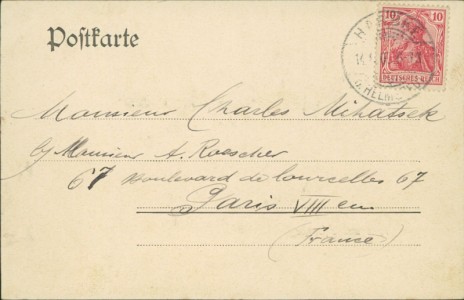 Postkarte
10 10
DEUTSCHES REICH
Monsieur Charles Mihatsek
by Monsieur A. Roescher
67 Boulevard de Courcelles 67
Paris VIII em
(France)